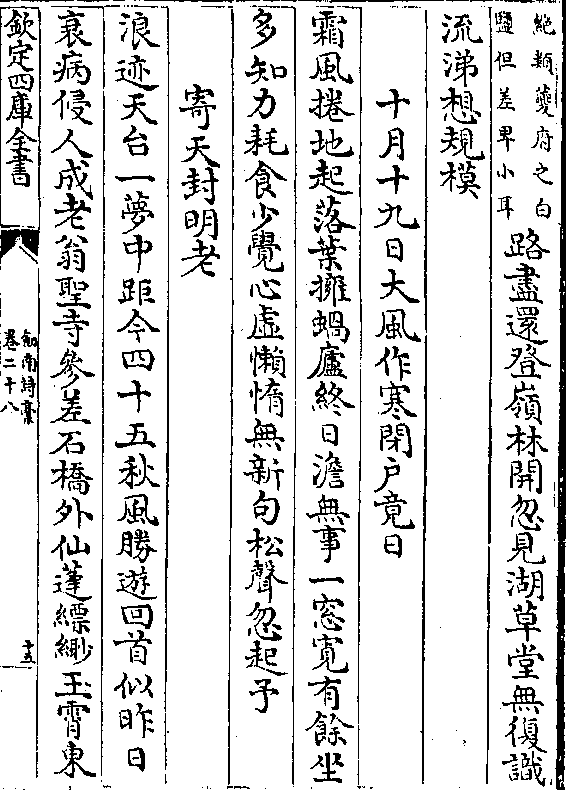 絶類夔府之白
鹽但差卑小耳
路盡還登嶺林開忽見湖草堂無復識
流涕想規模
十月十九日大風作寒閉户竟日
霜風捲地起落葉擁蝸廬終日澹無事一窓寛有餘坐
多知力耗食少覺心虛懶惰無新句松聲忽起予
寄天封明老
浪迹天台一夢中距今四十五秋風勝遊回首似昨日
衰病侵人成老翁聖寺參差石橋外仙蓬縹緲玉霄東
欽定四庫全書
劍南詩藁
卷二十八
十五